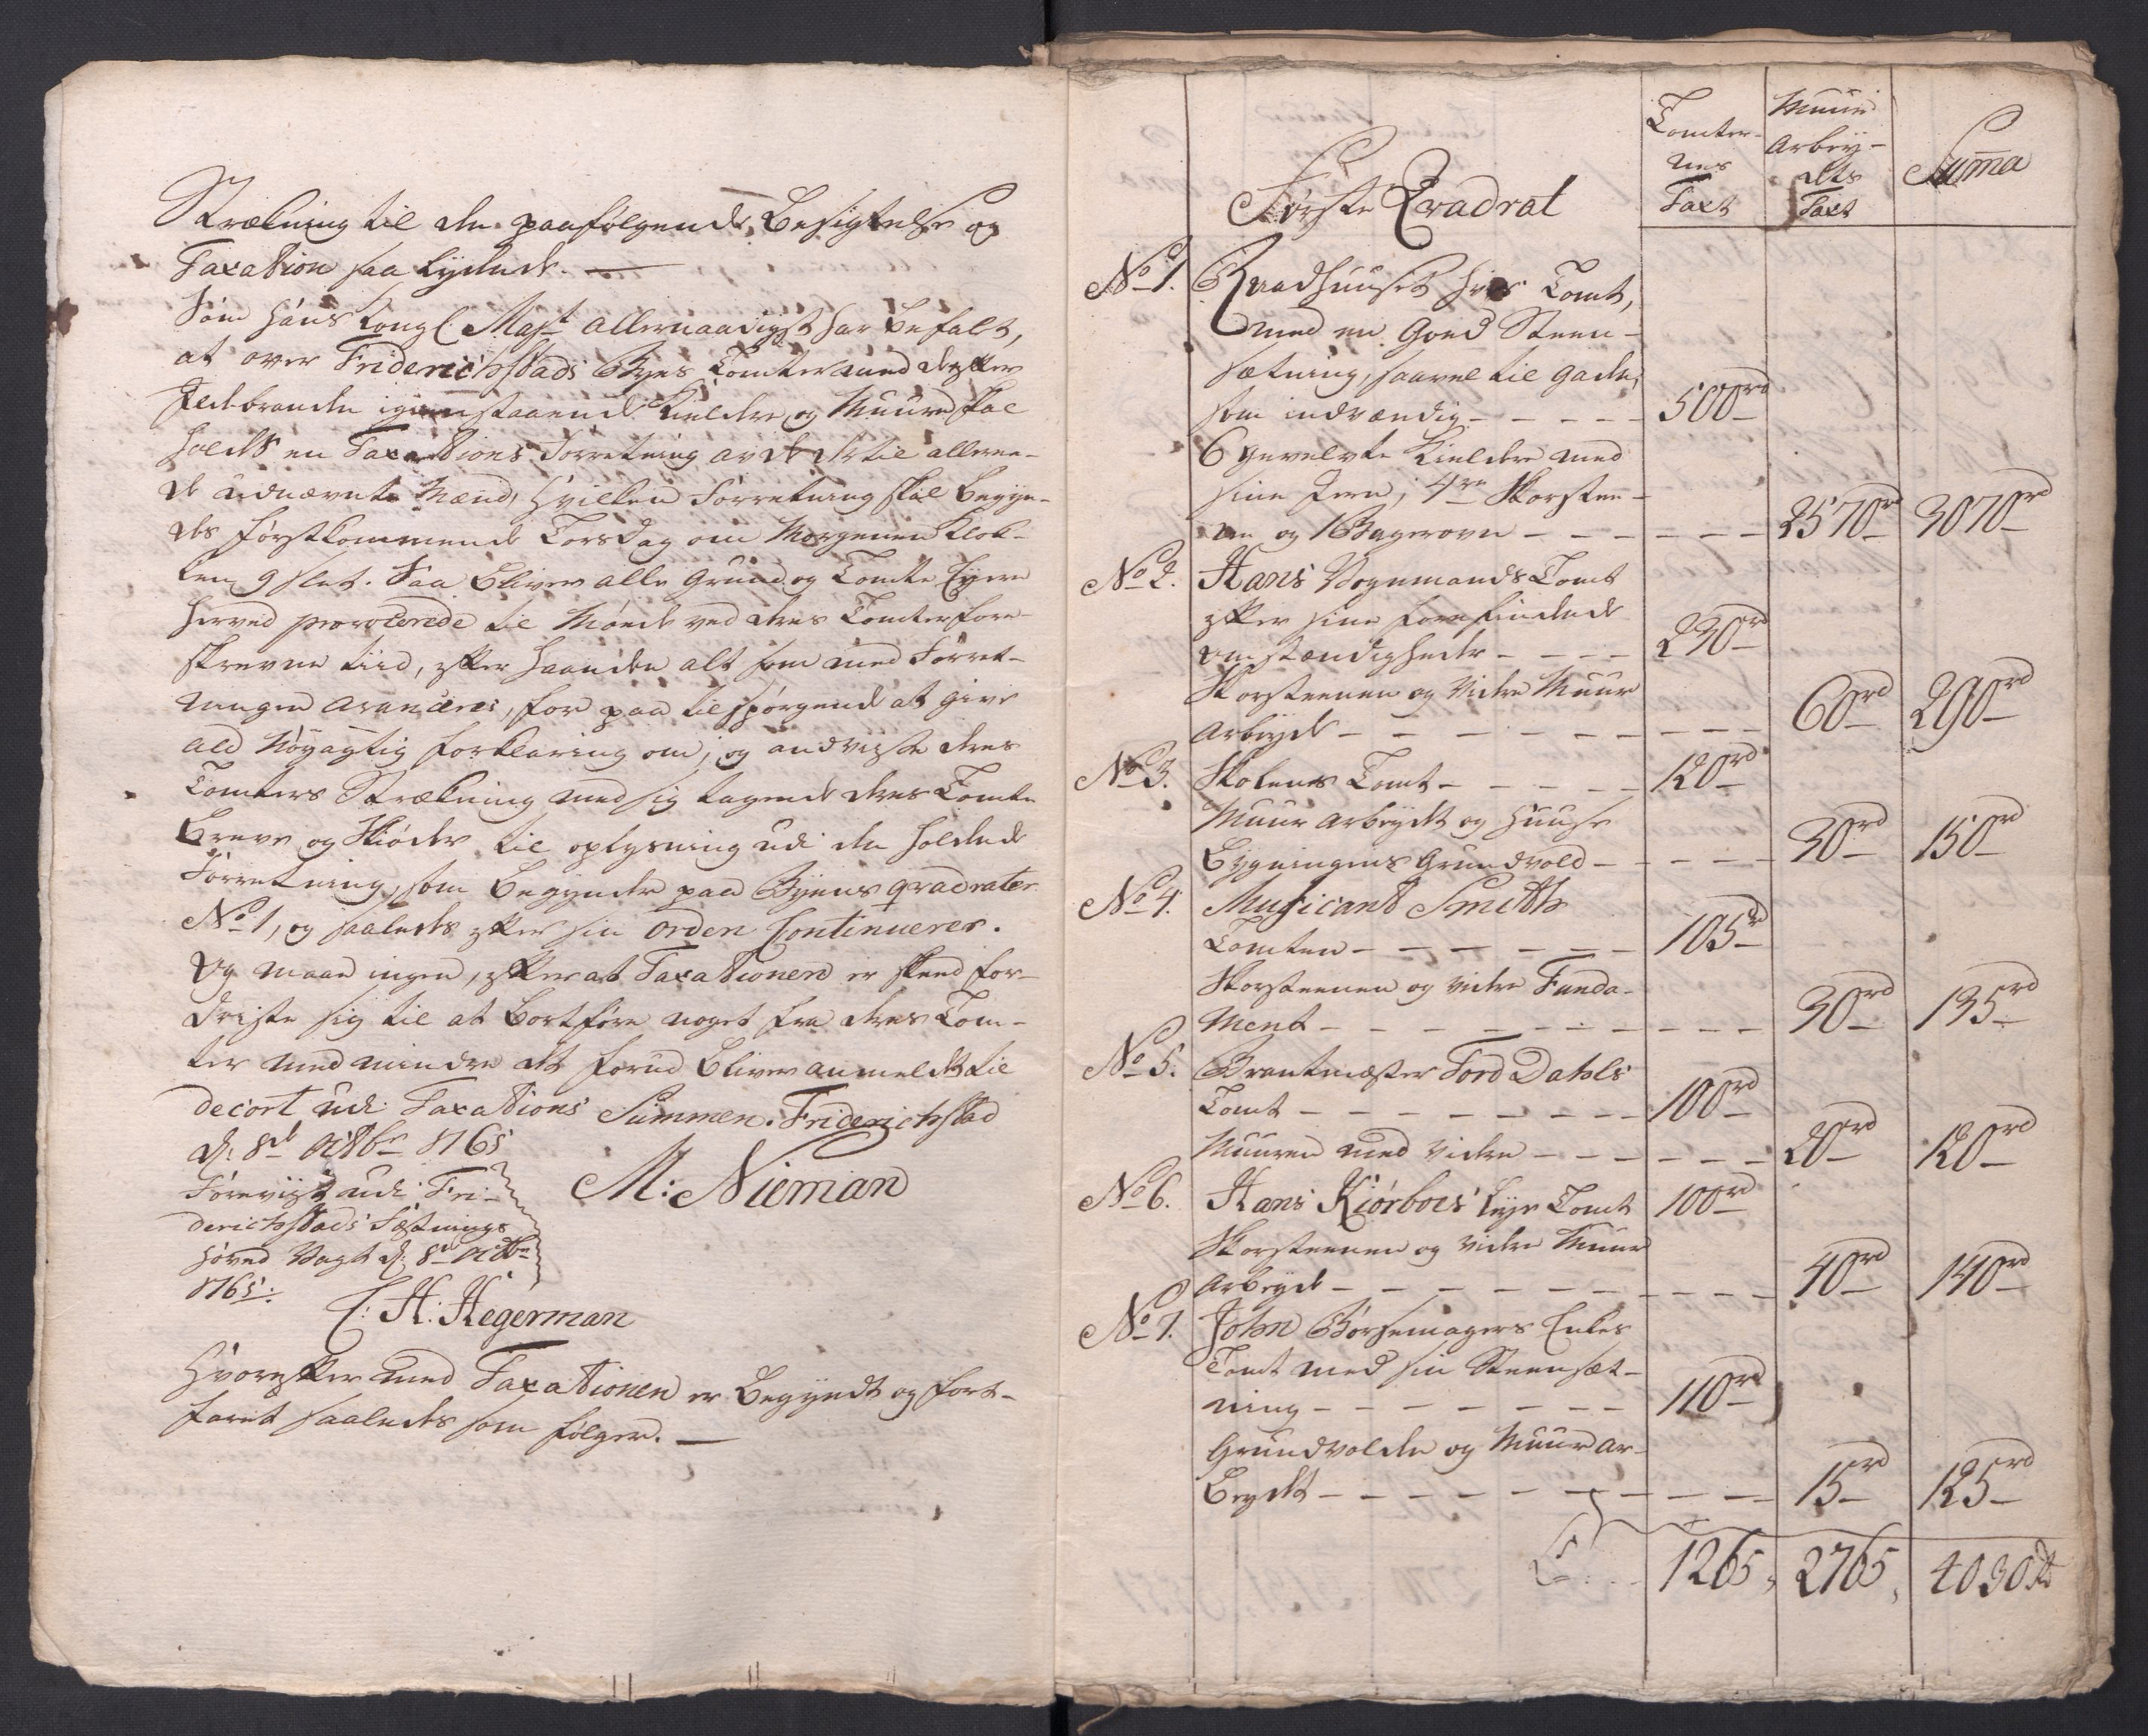 Strækning til den paafølgende Besigtelse og
Taxation saa lydende. —
Som Hans Kongl. Majt allernaadigst har befalt,
at over Friderichstads Byes Tomter med de efter
Ildebranden igienstaaende Kieldre og Muure skal
holdes en Taxations Forretning av de dertil allere-
de udnævnte Mænd, hvilken Forretning skal begyn-
des førstkommende Torsdag om Morgenen Klok-
ken 9 slet. Saa bliver alle Grund og Tomte Eyere
herved provocerede til Møende ved deres Tomter fore-
skrevne tiid, efter haanden alt som med Forret-
ningen avancères, for paa tilspørgende at give
ald Nøyagtig forklaring om, og andviste deres
Tomters Strækning med sig tagende deres Tomte
Breve og Skiøder til oplysning udi den holdende
Forretning, som begynder paa Byens qvadrater
No 1, og saaledes efter sin Orden Continuerer.
Og maae ingen, efter at Taxationen er skeed for-
driste sig til at bortføre noget fra deres Tom-
ter med mindre det forud bliver anmeldt til
decort udi Taxations Summen. Friderichstad
d: 8de Octbr 1765
M: Nieman
Foreviist udi Fri-
derichstads Fæstnings
Hoved Vagt d: 8de Octbr
1765:
C: H: Hegerman
Hvorefter med Taxationen er begyndt og fort-
faret saaledes som følger. —
Første Qvadrat
Tomter-
nes
Taxt
Muur
Arbey-
dets
Taxt
Suma
No 1. Raadhuuset hvis Tomt,
med en goed Steen-
sætning, saavel til gaden,
som indvændig - - - - 500rd
6 gevelvte Kieldre med
sine Jern, 4re Skorstee-
ne og 1 Bagerovn - - - - 2570rd 3070rd
No 2. Hans Vognmands Tomt
efter sine forefindende
omstændigheder - - - 230rd
Skorsteenen og videre Muur
Arbeyde - - - - - - 60rd 290rd
No 3. Skolens Tomt - - - - 120rd
Muur Arbeydet og Huuse
Bygningens Grundvold - - - - 30rd 150rd
No 4. Musicant Smith
Tomten - - - - - 105rd
Skorsteenen og videre Funda-
ment - - - - - - - 30rd 135rd
No 5. Brantmæster Tord Dahls
Tomt - - - - - - - 100rd
Muuren med videre - - - - - 20rd 120rd
No 6. Hans Kiørboes leye Tomt 100rd
Skorsteenen og videre Muur
Arbeyde - - - - - - - 40rd 140rd
No 7. John Børsemagers Enkes
Tomt med sin Steensæt-
ning - - - - - - - 110rd
Grundvolden og Muur Ar-
beydet - - - - - - - 15rd 125rd
1265, 2765, 4030rd